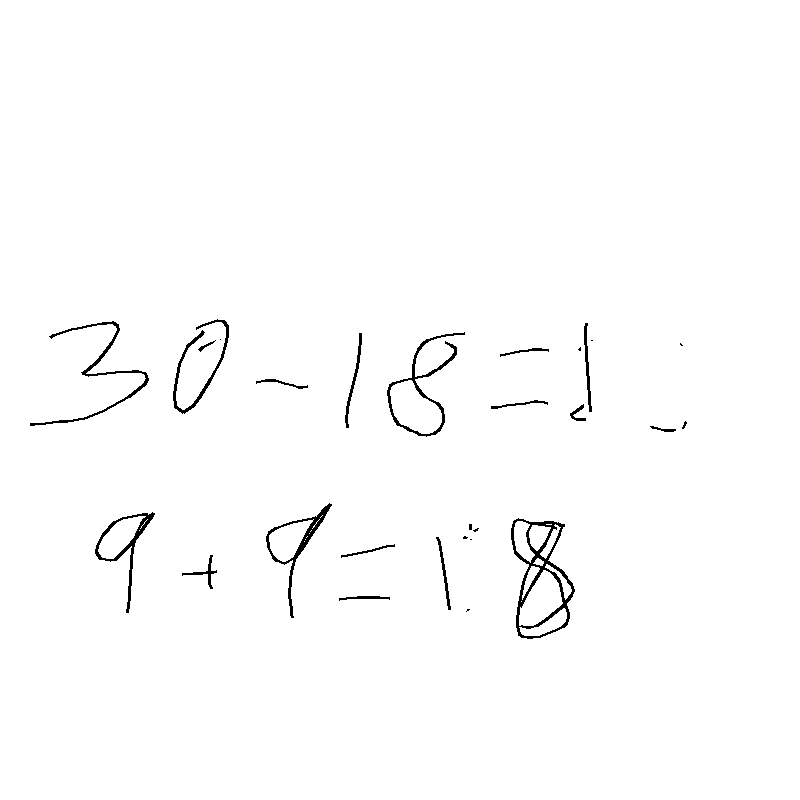 30-18=1
9+9=18